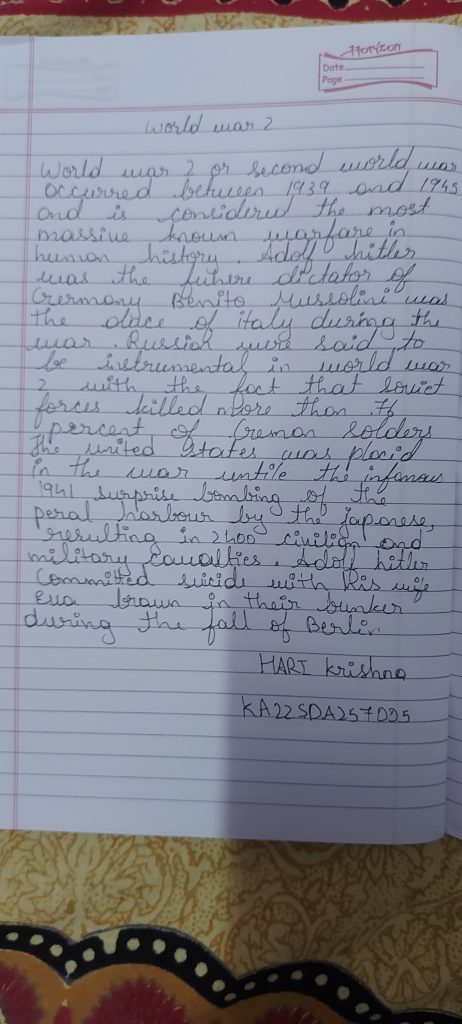 Horizon
Date
Page
World war 2
World war 2 or second world war
occurred between 1939 and 1945
and is considered the most
massive known warfare in
human history. Adolf hitler
was the fuhere dictator of
Germany Benito Mussolini was
the duce of italy during the
war. Russian were said to
be instrumental in world war
2 with the fact that soviet
forces killed more than 76
percent of Greman solders
The united states was placid
in the war untile the infamous
1941 surprise bombing of the
peral harbour by the japanese,
resulting in 2400 civilian and
military caualties. Adolf hitler
Committed suicide with his wife
Eva brawn in their bunker
during the fall of Berlin
HARI Krishna
KA22SDA257005